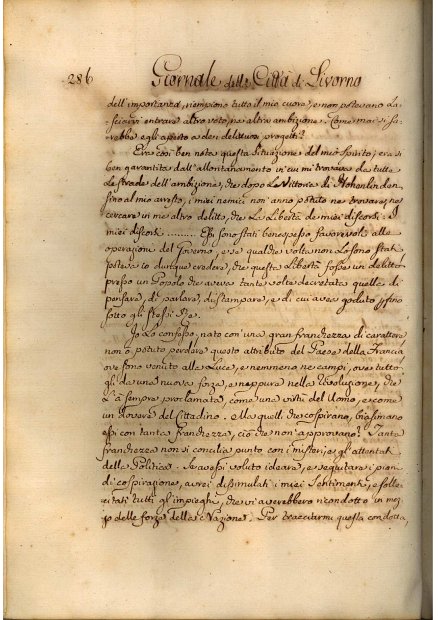 286 Giornale della Città di Livorno
dell'importanza, riempiono tutto il mio cuore, e non potevano la-
sciarvi entrare altro voto, ne altra ambizione. Come mai si sa-
rebbe egli aperto a dei delittuosi progetti?
Era così ben nota questa Situazione del mio Spirito; era sì
ben garantita dall'allontanamento in cui mi trovavo da tutte
Le strade dell'ambizione, che dopo La Vittoria di Hohenlinden
sino al mio arresto, i miei nemici non anno potuto ne trovare, ne
cercare in me altro delitto, che La Libertà de miei discorsi: i
miei discorsi ......... Essi sono stati bene spesso favorevoli alle
operazioni del Governo, e se qualche volta non Lo sono stati
poteva io dunque credere, che questa Libertà fosse un delitto
presso un Popolo che aveva tante volte decretata quella di
pensare, di parlare, di stampare, e di cui aveva goduto fino
sotto gli Stessi Re.
Io Lo confesso, nato con una gran franchezza di carattere
non ò potuto perdere questo attributo del Paese della Francia
ove sono venuto alla Luce, e nemmeno ne campi, ove tutto
gli da una nuova forza, e neppure nella Rivoluzione, che
L'à sempre proclamata, come una virtù del Uomo, e come
un dovere del Cittadino. Ma quelli che cospirano, biasimano
essi con tanta franchezza, ciò che non approvano? Tanta
franchezza non si concilia punto con i misteri, e gli attentati
della Politica. Se avessi voluto ideare, e seguitare i piani
di cospirazione, avrei dissimulati i miei Sentimenti, e solle-
citati tutti gl'impieghi, che vi averebbero ricondotto in mez-
zo delle forze della Nazione. Per tracciarmi questa condotta,